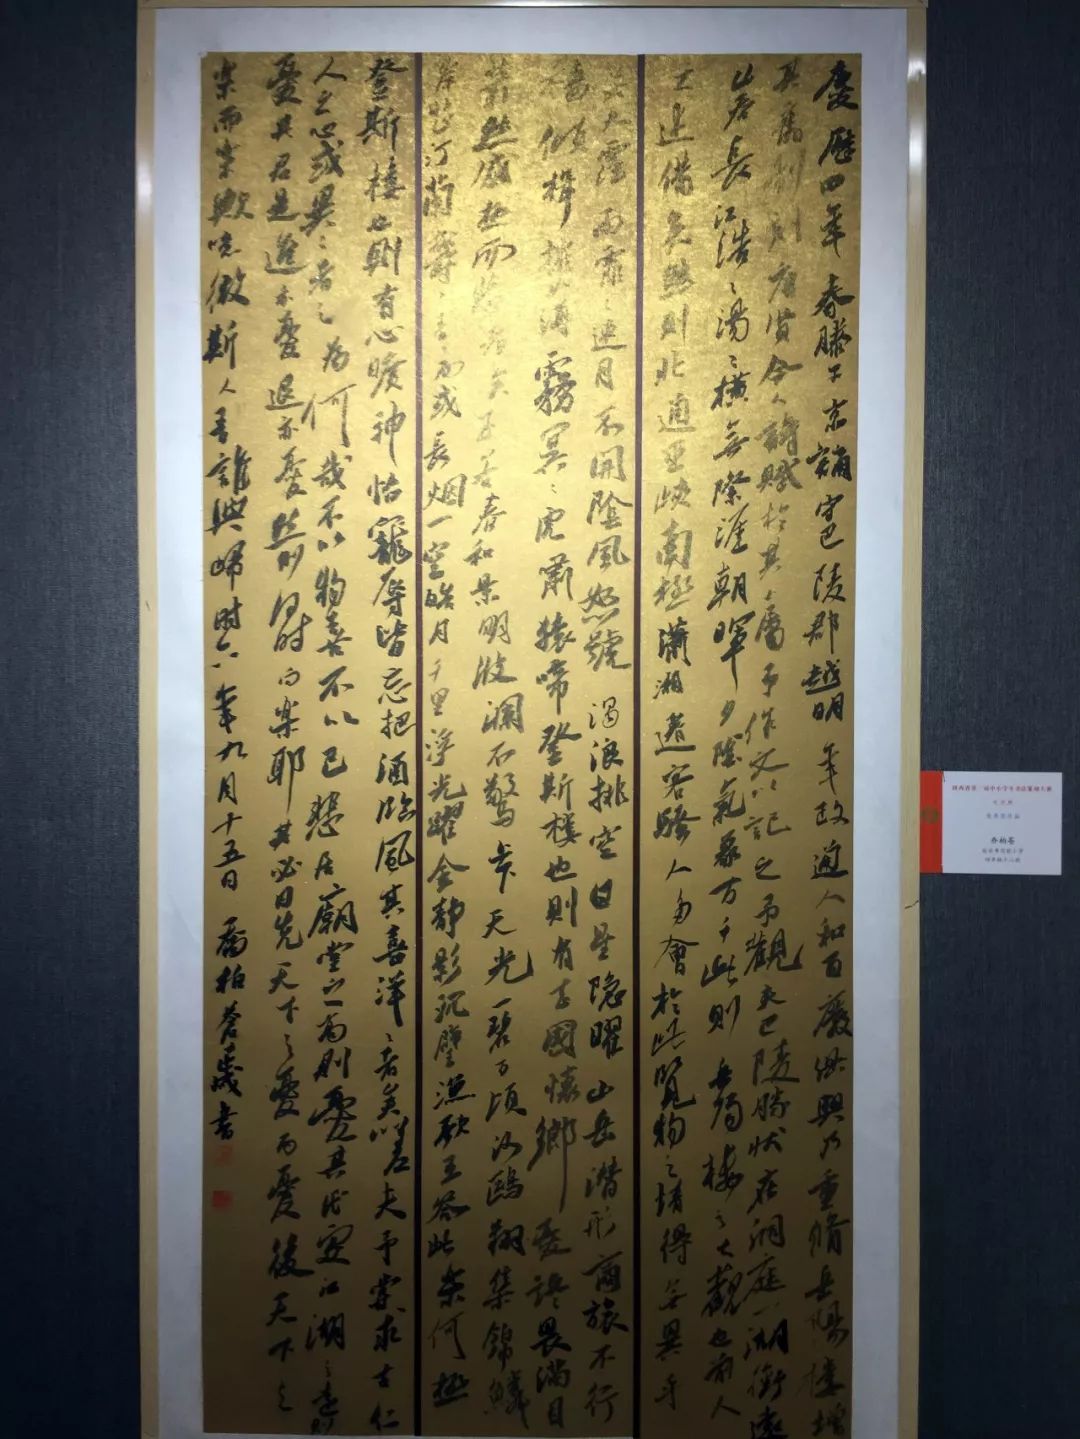 慶歷四年春滕子京謫守巴陵郡越明年政通人和百廢俱興乃重脩岳陽樓增
其舊制刻唐賢今人詩賦於其上屬予作文以記之予觀夫巴陵勝狀在洞庭一湖銜遠
山吞長江浩〻湯〻橫無際涯朝暉夕陰氣象万千此則岳陽樓之大觀也前人
之述備矣然則北通巫峽南極瀟湘遷客騷人多會於此覽物之情得無異乎
若夫霪雨霏〻連月不開陰風怒號濁浪排空日星隱曜山岳潛形商旅不行
檣傾楫摧薄暮冥〻虎嘯猿啼登斯樓也則有去國懷鄉憂讒畏滿目
蕭然感極而悲者矣至若春和景明波瀾不驚上下天光一碧万頃沙鷗翔集錦鱗
岸芷汀蘭郁〻青〻而或長烟一空皓月千里浮光躍金靜影沉璧漁歌互答此樂何極
登斯樓也則有心曠神怡寵辱皆忘把酒臨風其喜洋〻者矣嗟夫予嘗求古仁
人之心或異二者之為何哉不以物喜不以己悲居廟堂之高則憂其民處江湖之遠則
憂其君是進亦憂退亦憂然則何時而樂耶其必曰先天下之憂而憂後天下之
樂而樂歟噫微斯人吾誰與歸時六年九月十五日 喬柏蒼歲書
陝西省第一屆中小學生書法篆刻大賽
乔柏苍